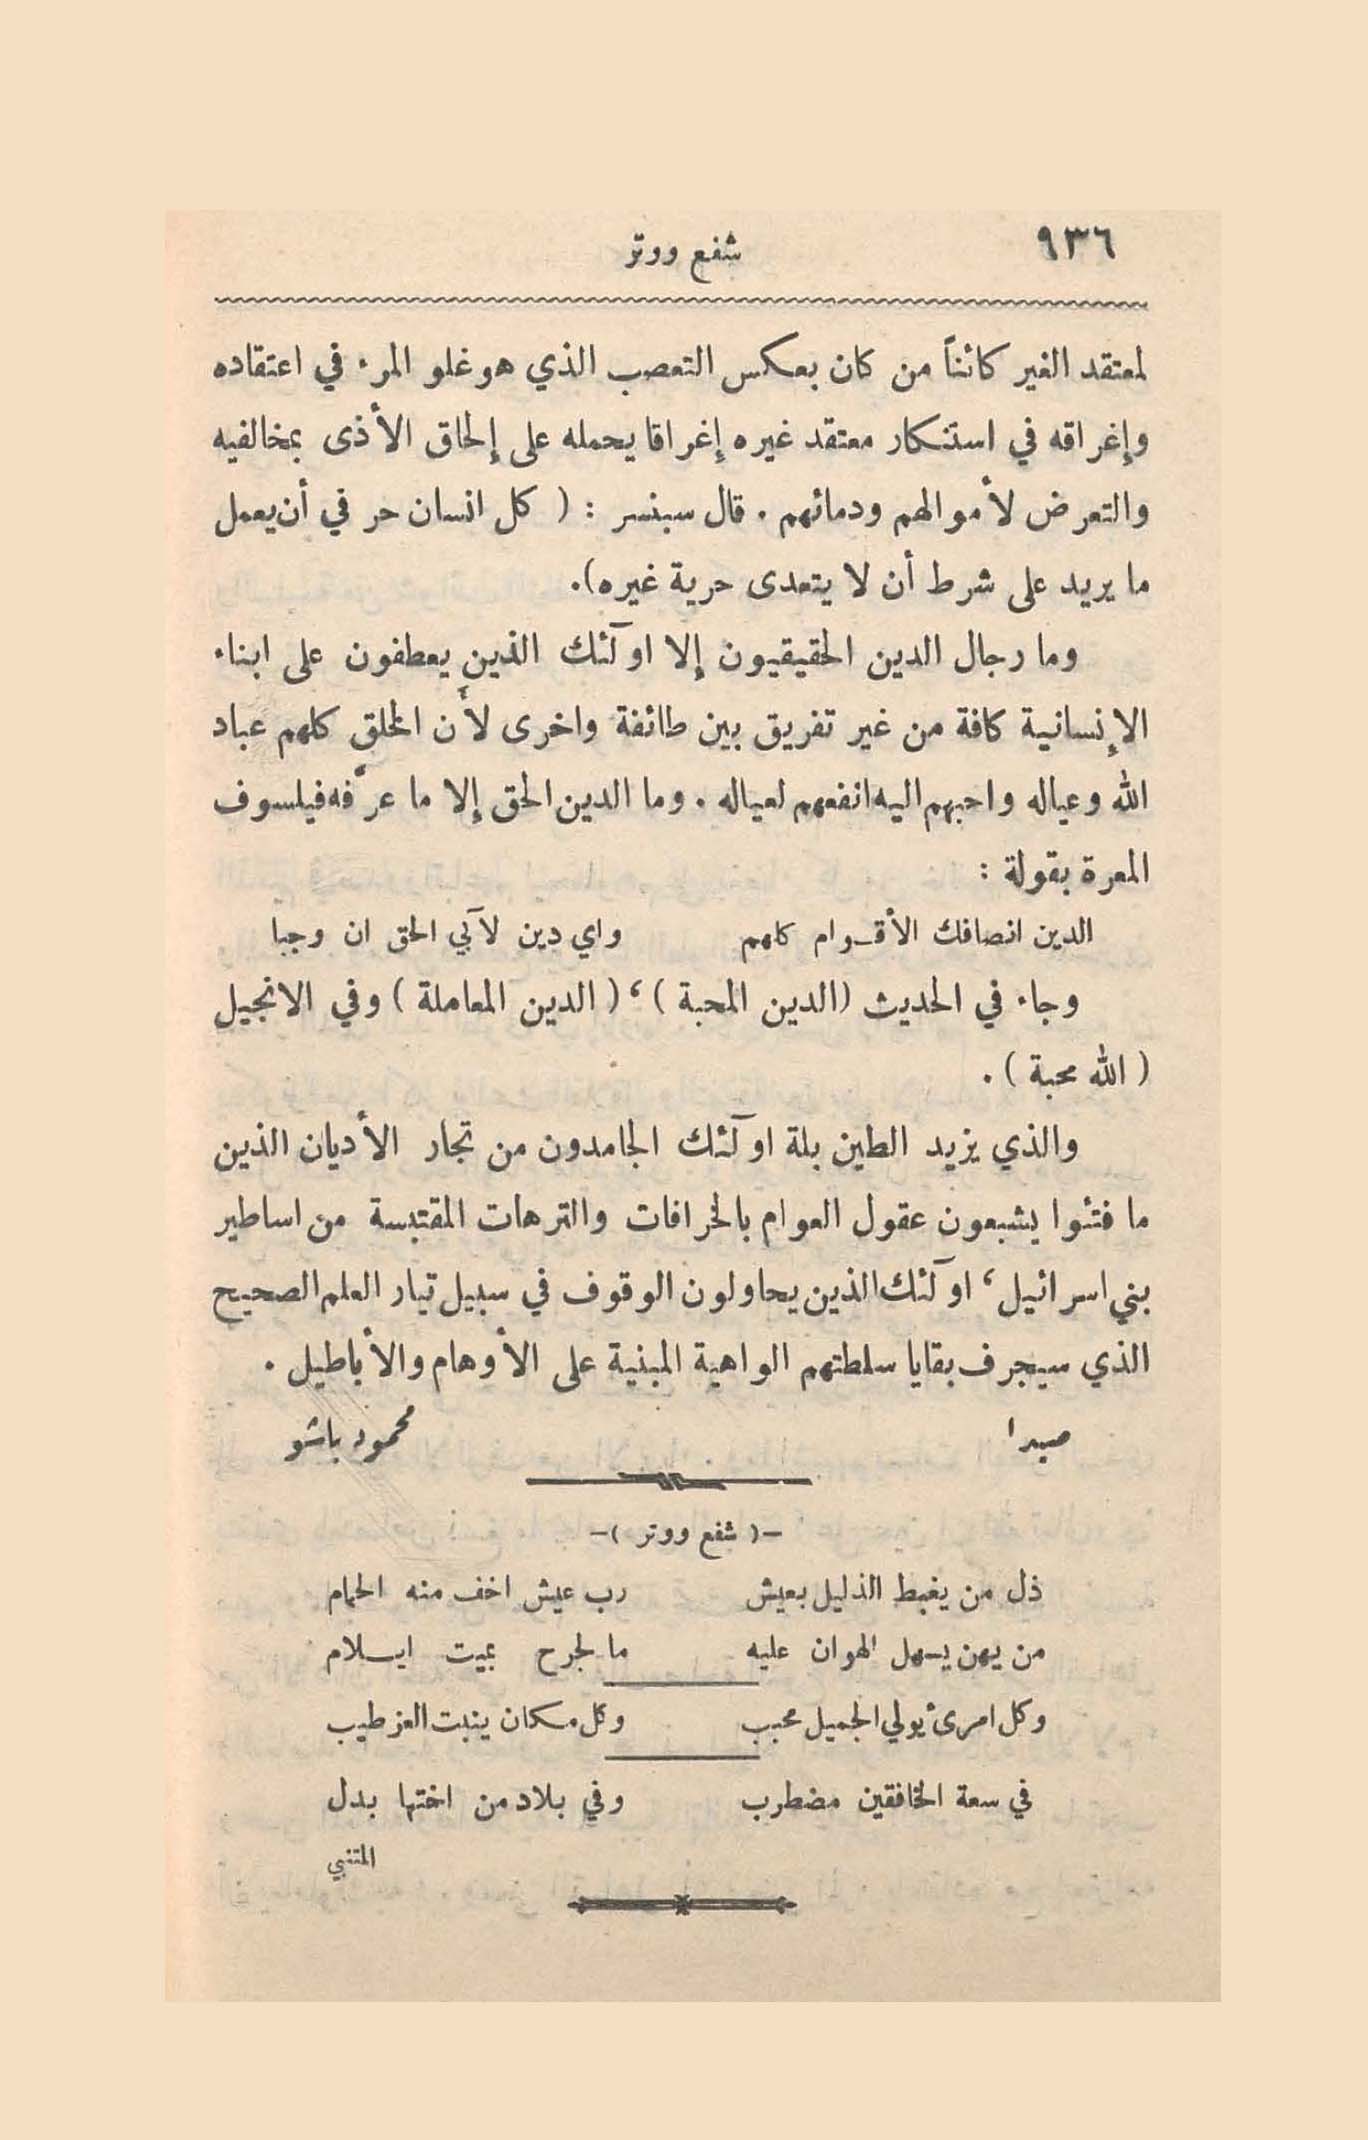 ٩٣٦
شفع ووتر
لمعتقد الغير كائناً من كان بعكس التعصب الذي هو غلو المرء في اعتقاده
وإغراقه في استنكار معتقد غيره إغراقا يحمله على إلحاق الأذى بمخالفيه
والتعرض لأموالهم ودمائهم . قال سبنسر : ( كل انسان حر في أن يعمل
ما يريد على شرط أن لا يتعدى حرية غيره).
وما رجال الدين الحقيقيون إلا اولٓئك الذين يعطفون على ابناء
الإنسانية كافة من غير تفريق بين طائفة واخرى لأن الخلق كلهم عباد
الله وعياله واحبهم اليه انفعهم لعياله . وما الدين الحق إلا ما عرّفه فيلسوف
المعرة بقولة :
الدين انصافك الأقـوام كلهم واي دين لآبي الحق ان وجبا
وجاء في الحديث (الدين المحبة) ، (الدين المعاملة) وفي الانجيل
( الله محبة ) .
والذي يزيد الطين بلة اولٓئك الجامدون من تجار الأديان الذين
ما فتئوا يشبعون عقول العوام بالخرافات والترهات المقتبسة من اساطير
بني اسرائيل ، اولٓئك الذين يحاولون الوقوف في سبيل تيار العلم الصحيح
الذي سيجرف بقايا سلطتهم الواهية المبنية على الأوهام والأباطيل .
صيدا محمود باشو
–( شفع ووتر )–
ذل من يغبط الذليل بعيش رب عيش اخف منه الحمام
من يهن يسهل الهوان عليه ما لجرح بميت ايـلام
وكل امرئ يولي الجميل محبب وكل مكان ينبت العز طيب
في سعة الخافقين مضطرب وفي بلاد من اختها بدل
المتنبي